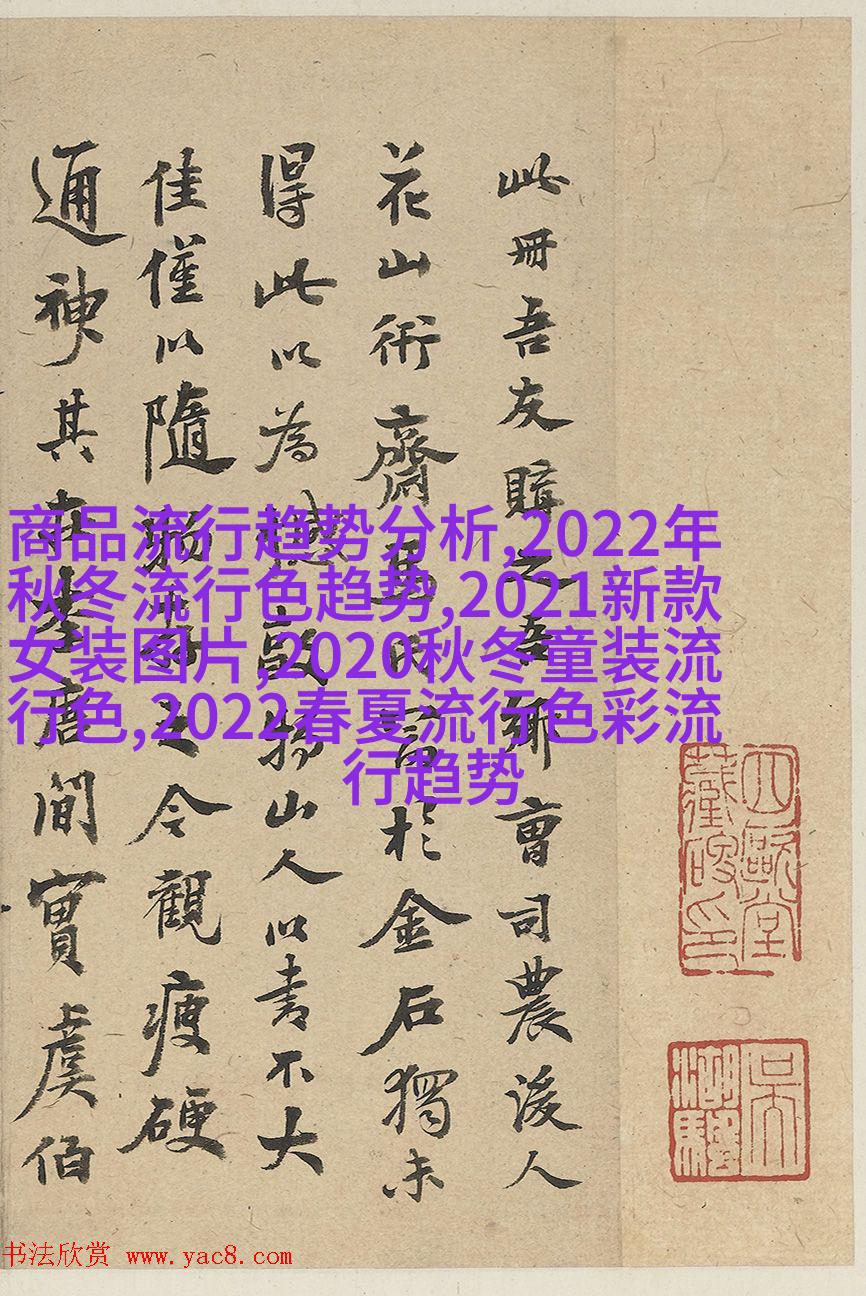 此冊吾友購之吾鄉曹司農後人
花山術齋馬田富於金石獨未
得此以為憾酘物山人以書不大
佳僅以隨躬齋之今觀瘦硬
通神其在李唐間實虞伯
商品流行趋势分析,2022年
秋冬流行色趋势,2021新款
女装图片,2020秋冬童装流
行色,2022春夏流行色彩流
行趋势
四歐堂
藏硯印
吳
湖
书法欣赏 www.yac8.com